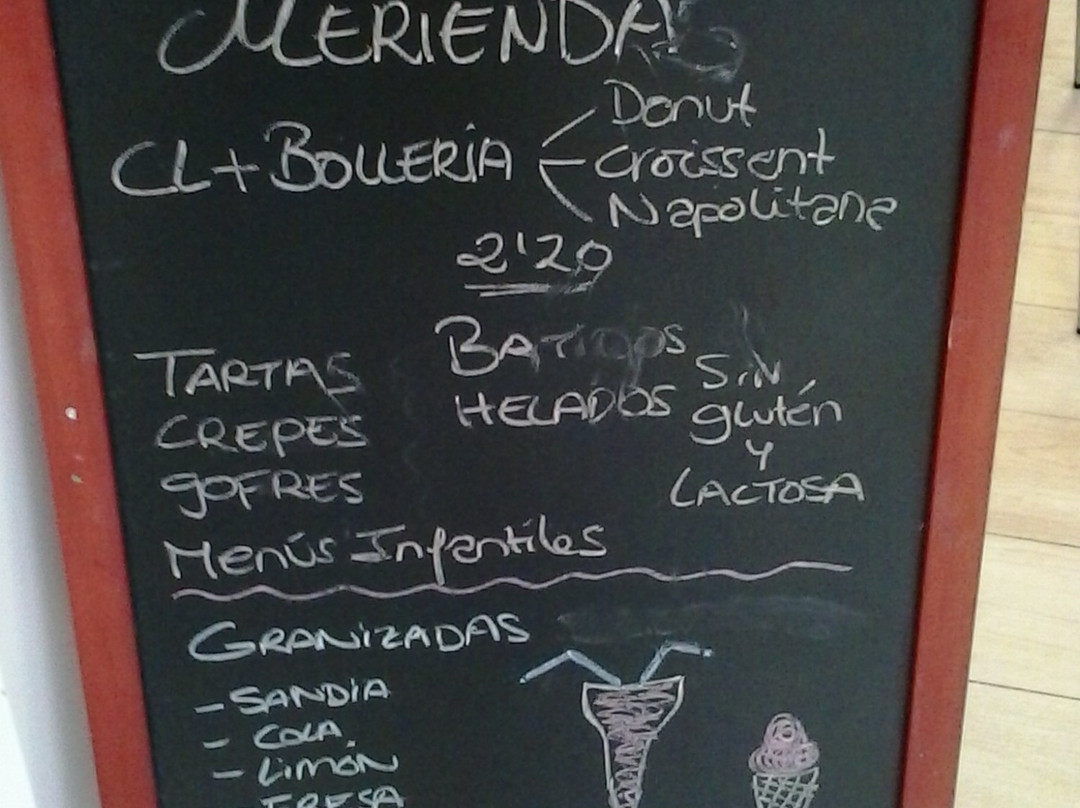 MERIENDAS
CL + BOLLERÍA
Donut
Croissant
Napolitana
2'20
TARTAS
CREPES
GOFRES
BATIDOS
HELADOS
SIN
glutén
Y
LACTOSA
Menús Infantiles
GRANIZADAS
- SANDÍA
- COLA
- LIMÓN
FRESA